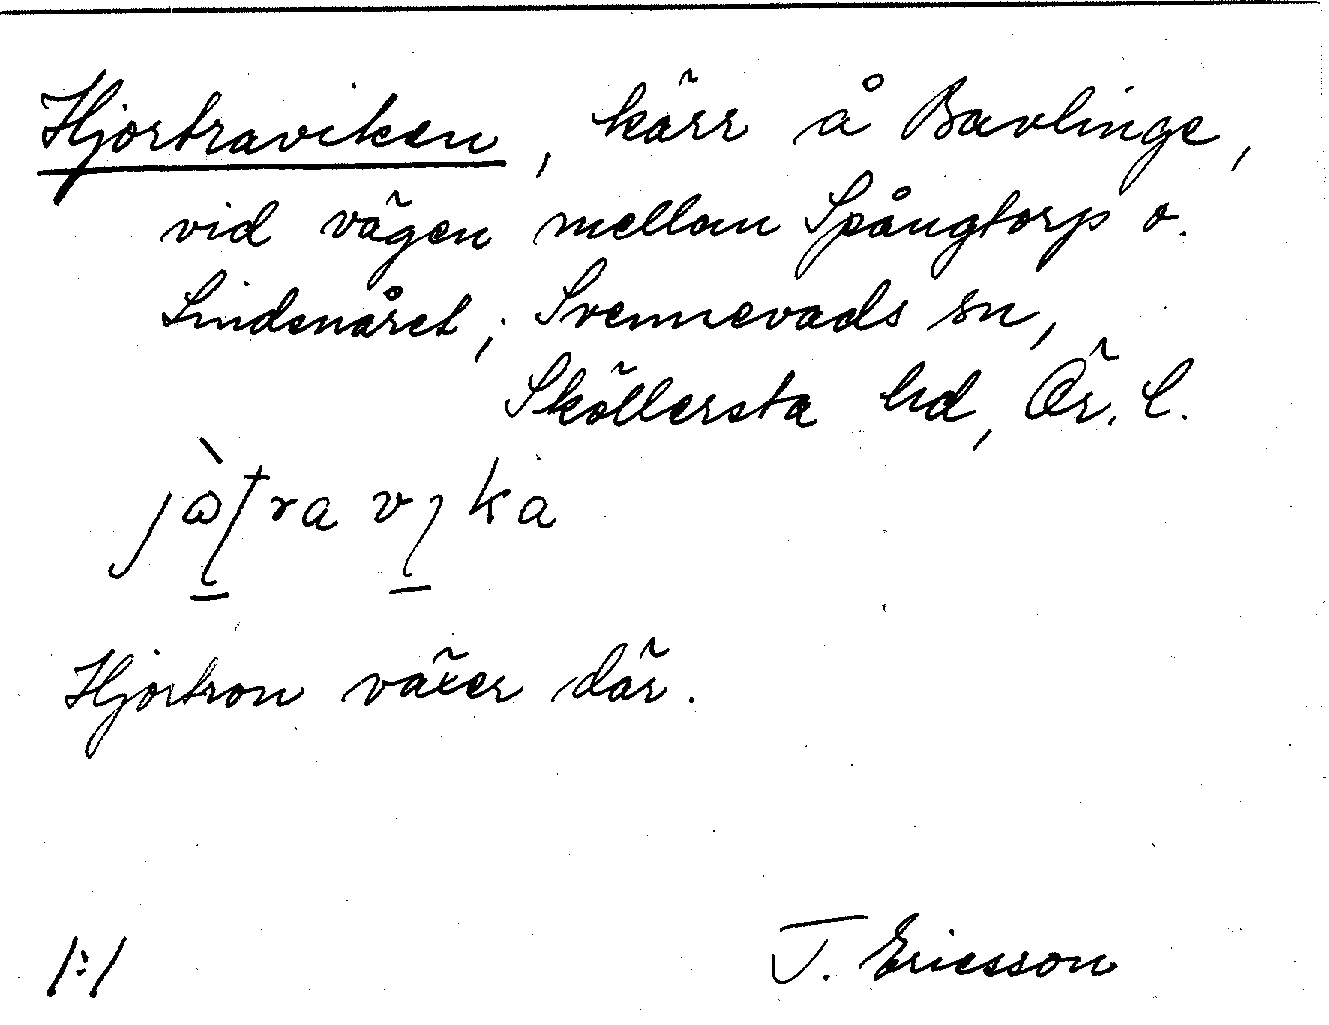 Hjortraviken, kärr å Bavlinge,
vid vägen mellan Spångtorp o.
Lindenäret; Svennevads sn,
Sköllersta hd, Ör. l.
Hjortron växer där.
/:/
J. Ericsson